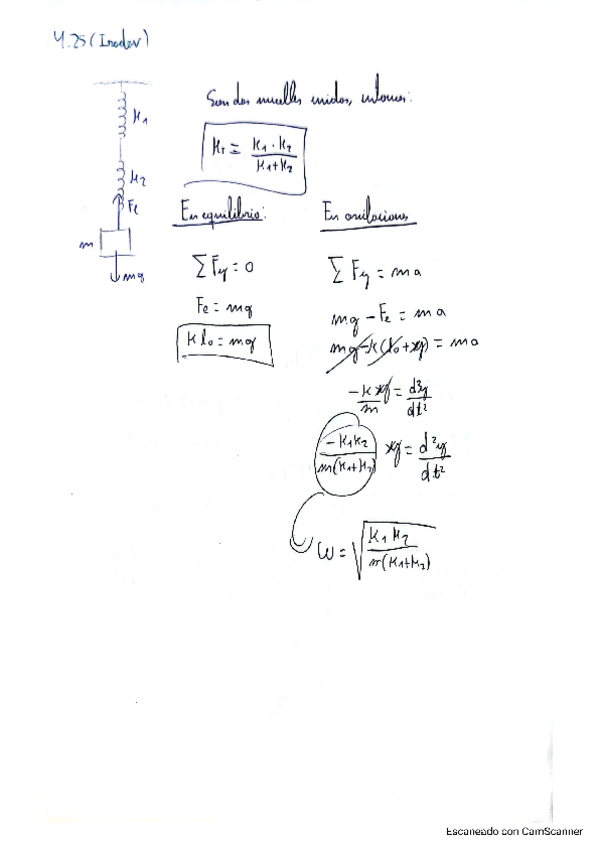 4.25 (Irodov)
Son dos muelles unidos, entonces:
K₁
K₂
Fe
m
mg
K_T = K₁ · K₂ / K₁+K₂
En equilibrio:
∑Fy = 0
Fe = mg
K l₀ = mg
En oscilaciones
∑Fy = ma
mg - Fe = ma
mg - K(l₀ + y) = ma
-K/m y = d²y/dt²
-K₁K₂ / m(K₁+K₂) y = d²y/dt²
ω = √(K₁K₂ / m(K₁+K₂))
Escaneado con CamScanner